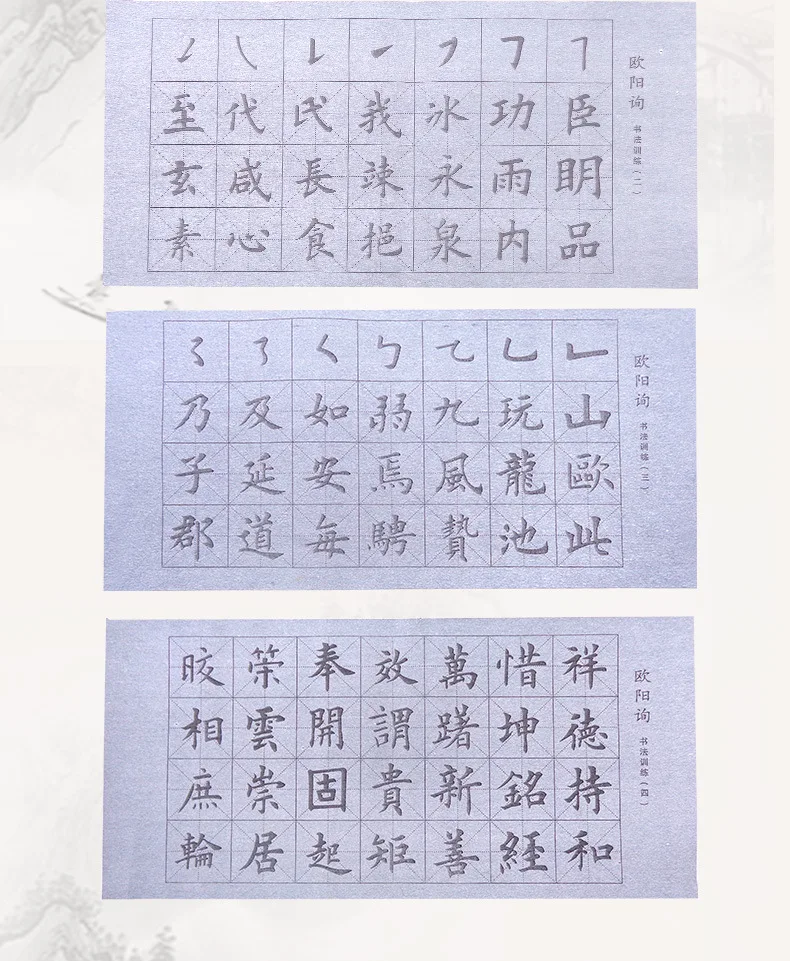 欧阳询
书法训练(二)
臣眀品
功雨内
冰永泉
我竦挹
民長食
代咸心
至玄素
欧阳询
书法训练(三)
山歐此
玩龍池
九風贄
弱焉騁
如安每
及延道
乃子郡
欧阳询
书法训练(四)
祥徳持和
惜坤銘經
萬躇新善
效謂貴矩
奉開固起
雲崇居
相庶輪